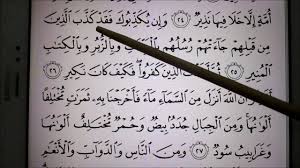 أُمَّةٍ إِلَّا خَلَا فِيهَا نَذِيرٌ ﴿٢٤﴾ وَإِن يُكَذِّبُوكَ فَقَدْ كَذَّبَ الَّذِينَ
مِن قَبْلِهِمْ جَاءَتْهُمْ رُسُلُهُم بِالْبَيِّنَاتِ وَبِالزُّبُرِ وَبِالْكِتَابِ
الْمُنِيرِ ﴿٢٥﴾ الَّذِينَ كَفَرُوا فَكَيْفَ كَانَ نَكِيرِ
﴿٢٦﴾ أَنَّ اللَّهَ أَنزَلَ مِنَ السَّمَاءِ مَاءً فَأَخْرَجْنَا بِهِ ثَمَرَاتٍ مُّخْتَلِفًا
أَلْوَانُهَا وَمِنَ الْجِبَالِ جُدَدٌ بِيضٌ وَحُمْرٌ مُّخْتَلِفٌ أَلْوَانُهَا
وَغَرَابِيبُ سُودٌ ﴿٢٧﴾ وَمِنَ النَّاسِ وَالدَّوَابِّ وَالْأَنْعَامِ